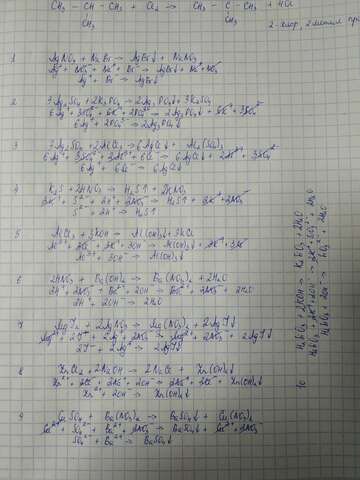 CH₃ — CH — CH₃ + Cl₂ → CH₃ — C — CH₃ + HCl
CH₃ CH₃
2-хлор, 2метил
1 AgNO₃ + NaBr → AgBr↓ + NaNO₃
Ag⁺ + NO₃⁻ + Na⁺ + Br⁻ → AgBr↓ + Na⁺ + NO₃⁻
Ag⁺ + Br⁻ → AgBr↓
2 3Ag₂SO₄ + 2K₃PO₄ → 2Ag₃PO₄↓ + 3K₂SO₄
6Ag⁺ + 3SO₄²⁻ + 6K⁺ + 2PO₄³⁻ → 2Ag₃PO₄↓ + 6K⁺ + 3SO₄²⁻
6Ag⁺ + 2PO₄³⁻ → 2Ag₃PO₄↓
3 3Ag₂SO₄ + 2AlCl₃ → 6AgCl↓ + Al₂(SO₄)₃
6Ag⁺ + 3SO₄²⁻ + 2Al³⁺ + 6Cl⁻ → 6AgCl↓ + 2Al³⁺ + 3SO₄²⁻
6Ag⁺ + 6Cl⁻ → 6AgCl↓
4 K₂S + 2HNO₃ → H₂S↑ + 2KNO₃
2K⁺ + S²⁻ + 2H⁺ + 2NO₃⁻ → H₂S↑ + 2K⁺ + 2NO₃⁻
S²⁻ + 2H⁺ → H₂S↑
5 AlCl₃ + 3KOH → Al(OH)₃↓ + 3KCl
Al³⁺ + 3Cl⁻ + 3K⁺ + 3OH⁻ → Al(OH)₃↓ + 3K⁺ + 3Cl⁻
Al³⁺ + 3OH⁻ → Al(OH)₃↓
6 2HNO₃ + Ba(OH)₂ → Ba(NO₃)₂ + 2H₂O
2H⁺ + 2NO₃⁻ + Ba²⁺ + 2OH⁻ → Ba²⁺ + 2NO₃⁻ + 2H₂O
2H⁺ + 2OH⁻ → 2H₂O
7 MgI₂ + 2AgNO₃ → Mg(NO₃)₂ + 2AgI↓
Mg²⁺ + 2I⁻ + 2Ag⁺ + 2NO₃⁻ → Mg²⁺ + 2NO₃⁻ + 2AgI↓
2I⁻ + 2Ag⁺ → 2AgI↓
8 ZnCl₂ + 2NaOH → 2NaCl + Zn(OH)₂↓
Zn²⁺ + 2Cl⁻ + 2Na⁺ + 2OH⁻ → 2Na⁺ + 2Cl⁻ + Zn(OH)₂↓
Zn²⁺ + 2OH⁻ → Zn(OH)₂↓
9 CuSO₄ + Ba(NO₃)₂ → BaSO₄↓ + Cu(NO₃)₂
Cu²⁺ + SO₄²⁻ + Ba²⁺ + 2NO₃⁻ → BaSO₄↓ + Cu²⁺ + 2NO₃⁻
SO₄²⁻ + Ba²⁺ → BaSO₄↓
10